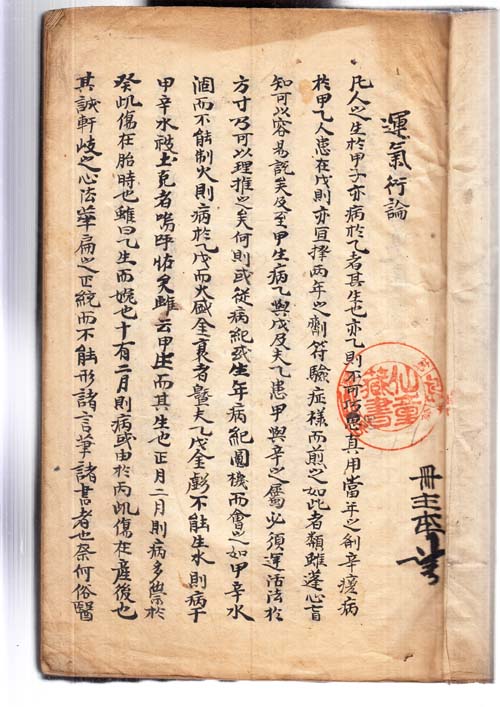 冊主本
運氣衍論
凡人之生於甲子亦病於乙者其生也亦乙則不可 真用當年之劑辛 病
於甲乙人患在戊則亦宜擇兩年之劑符驗症樣而煎之如此者類雖蓬心盲
知可以容易說矣及至甲生病乙與戊及夫乙患甲與辛之屬必須運活法於
方寸乃可以理推之矣何則或從病紀或生年病紀圓機而會之如甲辛水
涸而不能制火則病於乙戊而火盛金衰者 夫乙戊金 不能生水則病于
甲辛水被土克者嗚呼怪矣雖云甲生而其生也正月二月則病多祟於
癸此傷在胎時也雖曰乙生而娩也十有二月則病或由於丙此傷在產後也
其誠軒岐之心法華扁之正統而不能形諸言筆諸書者也奈何俗醫
仙童
藏書